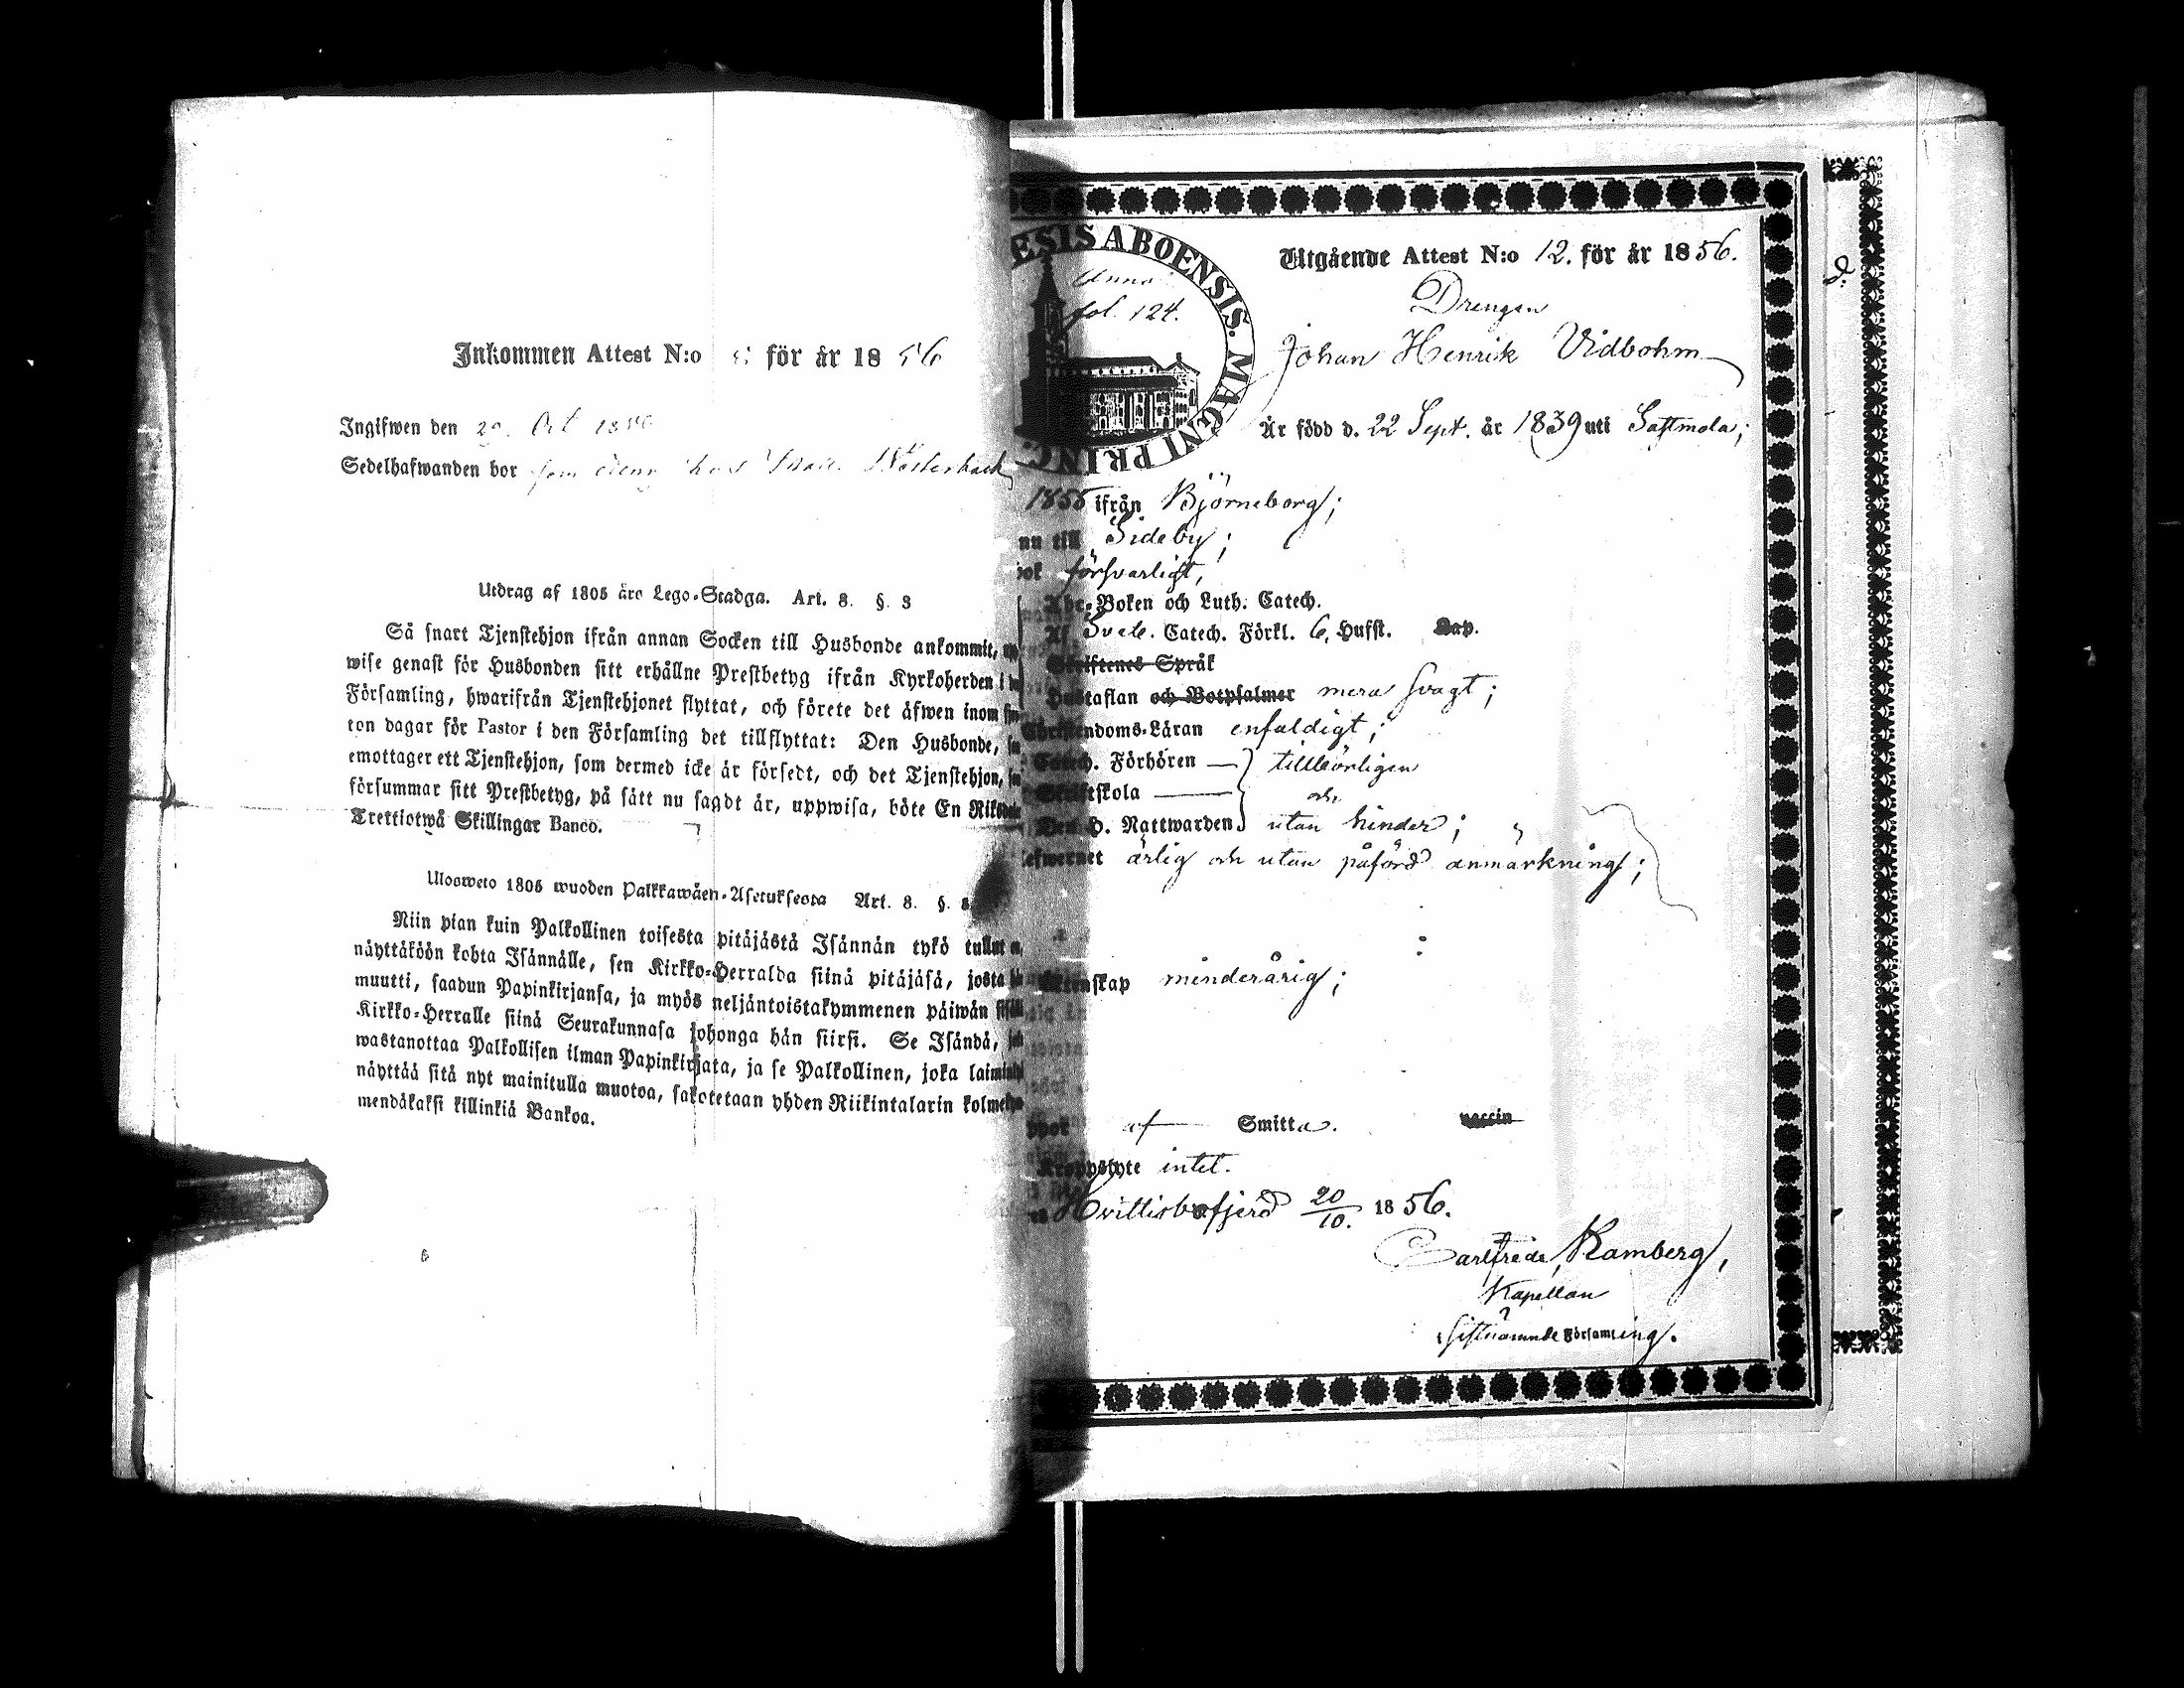 Inkommen Attest N:o för år 1856
Ingifwen den 29. Oct 1856
Sedelhafwanden bor som dreng hos Westerback
Utdrag af 1805 års Lego-Stadga. Art. 8. §. 3
Så snart Tjenstehjon ifrån annan Socken till Husbonde ankommit,
wise genast för Husbonden sitt erhållne Prestbetyg ifrån Kyrkoherden i
Församling, hwarifrån Tjenstehjonet flyttat, och förete det äfwen inom
ton dagar för Pastor i den Församling det tillflyttat: Den Husbonde,
emottager ett Tjenstehjon, som dermed icke är försedt, och det Tjenstehjon,
försummar sitt Prestbetyg, på sätt nu sagdt är, uppwisa, böte En
Trettiotwå Skillingar Banco.
Ulosweto 1805 wuoden Palkkawäen-Asetuksesta Art. 8. §.
Niin pian kuin Palkollinen toisesta pitäjästä Isännän tykö tullut
näyttäköön kohta Isännälle, sen Kirkko-Herralda siinä pitäjäsä, josta
muutti, saadun Papinkirjansa, ja myös neljäntoistakymmenen päiwän
Kirkko-Herralle siinä Seurakunnasa johonga hän siirsi. Se Isändä,
wastanottaa Palkollisen ilman Papinkirjata, ja se Palkollinen, joka
näyttää sitä nyt mainitulla muotoa, sakotetaan yhden Riikintalarin
mendäkaksi killinkiä Bankoa.
ESIS ABOENSIS. MAGNI PRINC
fol. 124.
Utgående Attest N:o 12. för år 1856.
Drengen
Johan Henrik Vidbohm
Är född d. 22 Sept. år 1839 uti Sastmola;
1855 ifrån Björneborg;
nu till Sideby;
ok försvarligt,
Abc-Boken och Luth. Catech.
Af Sveb. Catech. Förkl. 6, Hufst. Kap.
Skriftenes Språk
Hustaflan och Botpsalmer mera svagt;
Christendoms-Läran enfaldigt;
Catech. Förhören tillbörligen
Skriftskola och
Den H. Nattwarden utan hinder;
Lefwernet ärlig och utan påförd anmärkning;
Äktenskap minderårig;
af Smitta. vaccin
Kroppslyte intet.
Hvittisbofjerd 20/10. 1856.
Carlfried Ramberg,
Kapellan
sistnämnde Församling.